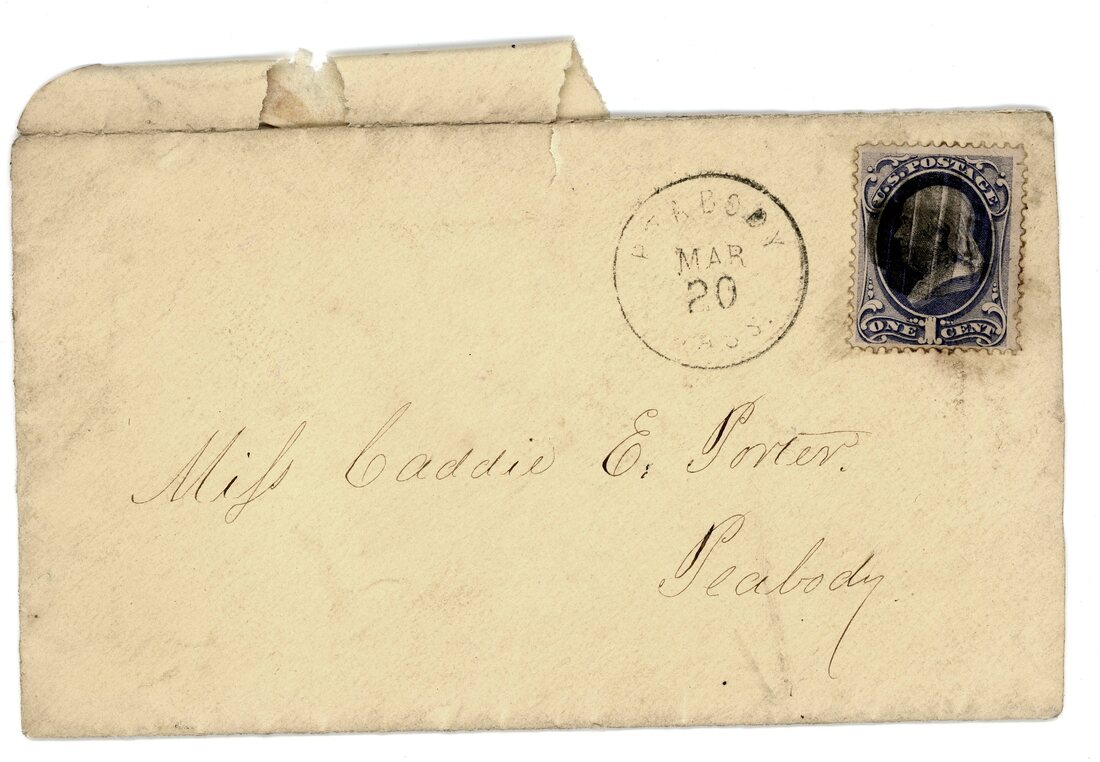 U.S. POSTAGE
PEABODY
MAR
20
MASS.
ONE 1 CENT
Miſs Caddie E. Porter.
Peabody